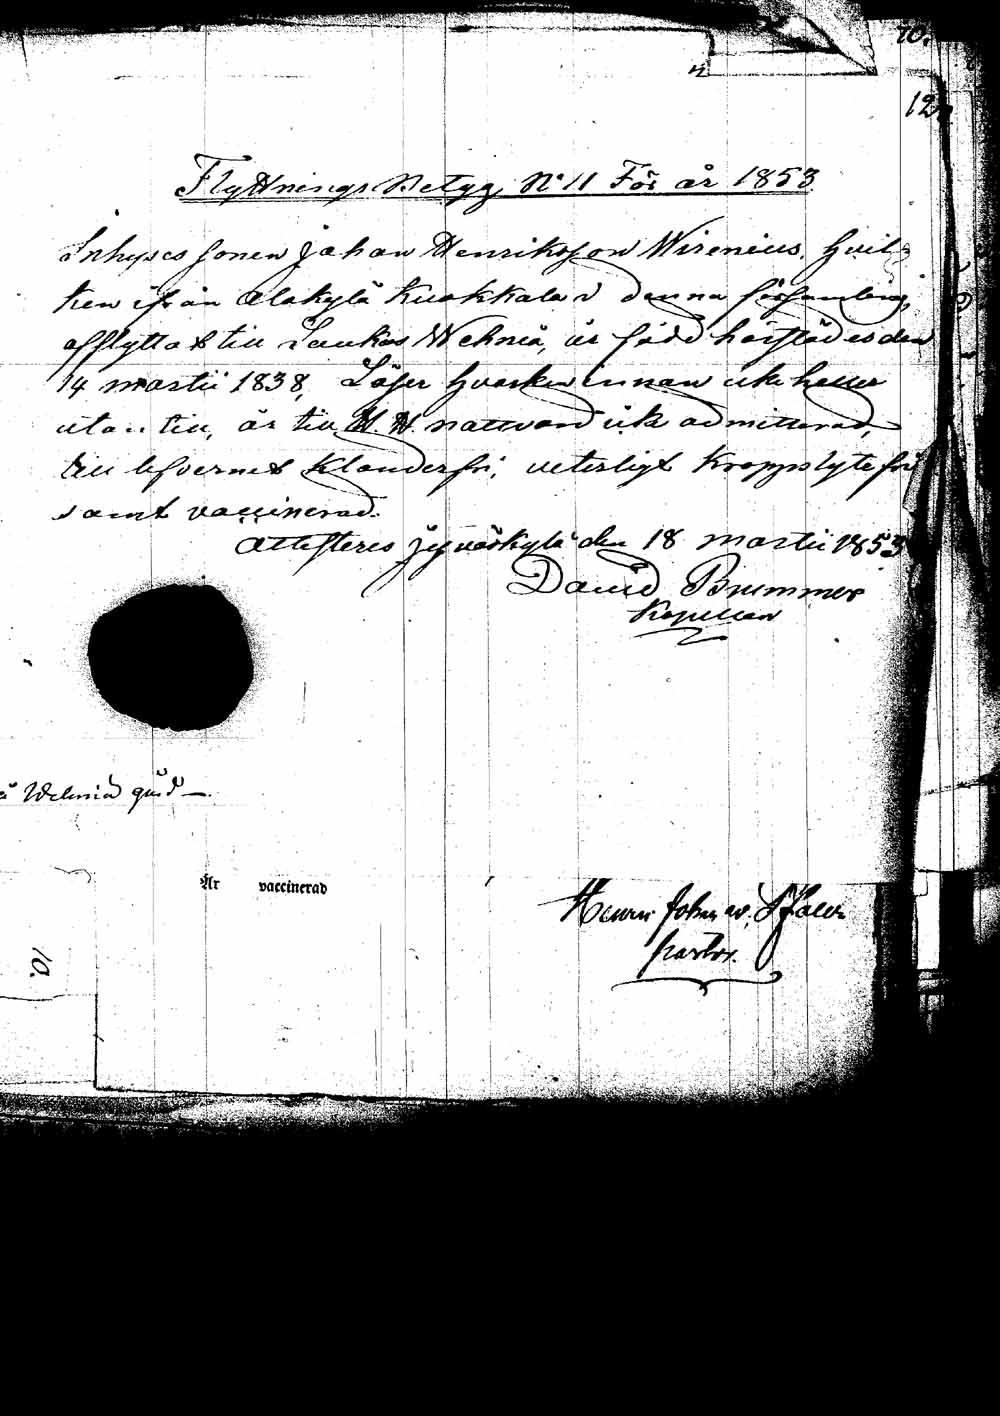 10.
12.
Flyttnings Betyg N:o 11 För år 1853
Inhyses sonen Johan Henriksson Wirenius, hvil-
ken ifrån Alakylä Kuokkala i denna församling,
afflyttat till Laukas Wehniä, är född härstädes den
14 martii 1838, Läser hvarken innan icke heller
utan till, är till H. H. nattvard icke admitterad,
till lefvernet klanderfri, veterligt kroppslytefri
samt vaccinerad.
Attesteres Jyväskylä den 18 martii 1853
David Brummer
Kapellan
Wehniä gård —.
Är vaccinerad
Johan
Pastor.
10.